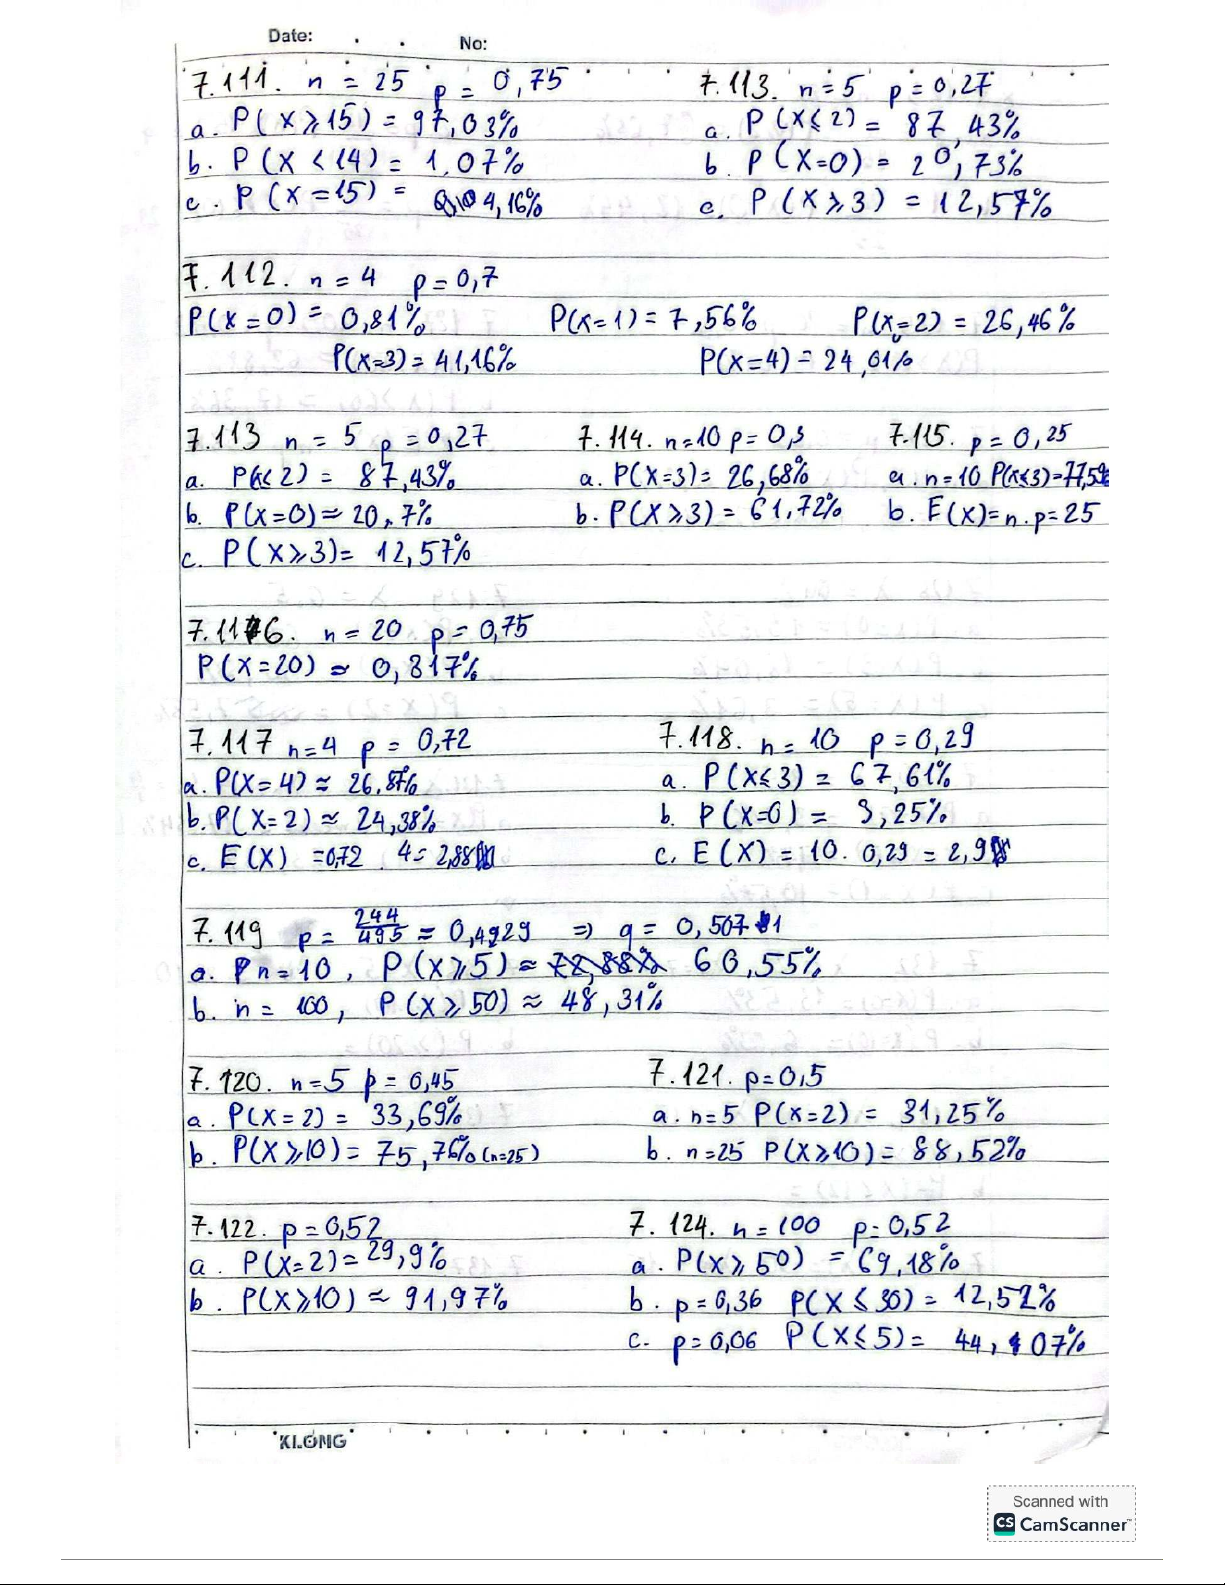 Date: . . No:
7.111. n = 25 p = 0,75
a. P(X⩾15) = 97,03%
b. P(X<14) = 1,07%
c. P(X=15) = 4,16%
7.113. n=5 p=0,27
a. P(X⩽2) = 87,43%
b. P(X=0) = 20,73%
c. P(X⩾3) = 12,57%
7.112. n=4 p=0,7
P(X=0) = 0,81% P(X=1) = 7,56% P(X=2) = 26,46%
P(X=3) = 41,16% P(X=4) = 24,01%
7.113 n = 5 p=0,27
a. P(X<2) = 87,43%
b. P(X=0) ≈ 20,7%
c. P(X⩾3) = 12,57%
7.114. n=10 p=0,3
a. P(X=3) = 26,68%
b. P(X⩾3) = 61,72%
7.115. p=0,25
a. n=10 P(X⩽3)=77,5%
b. E(X)=n.p=25
7.116. n=20 p=0,75
P(X=20) ≈ 0,317%
7.117 n=4 p=0,72
a. P(X=4) ≈ 26,87%
b. P(X=2) ≈ 24,38%
c. E(X) =0,72 . 4= 2,88
7.118. n=10 p=0,29
a. P(X⩽3) = 67,61%
b. P(X=0) = 3,25%
c. E(X) = 10. 0,29 = 2,9
7.119 p= 244/495 ≈ 0,4929 ⇒ q= 0,5071
a. n=10, P(X⩾5) ≈ 60,55%
b. n= 100, P(X⩾50) ≈ 48,31%
7.120. n=5 p=0,45
a. P(X=2) = 33,69%
b. P(X⩾10) = 75,76% (n=25)
7.121. p=0,5
a. n=5 P(X=2) = 31,25%
b. n=25 P(X⩾10) = 88,52%
7.122. p=0,52
a. P(X=2)=29,9%
b. P(X⩾10) ≈ 91,97%
7.124. n=100 p=0,52
a. P(X⩾50) = 69,18%
b. p=0,36 P(X⩽30) = 12,52%
c. p=0,06 P(X⩽5) = 44,07%
KLONG
Scanned with
CS CamScanner